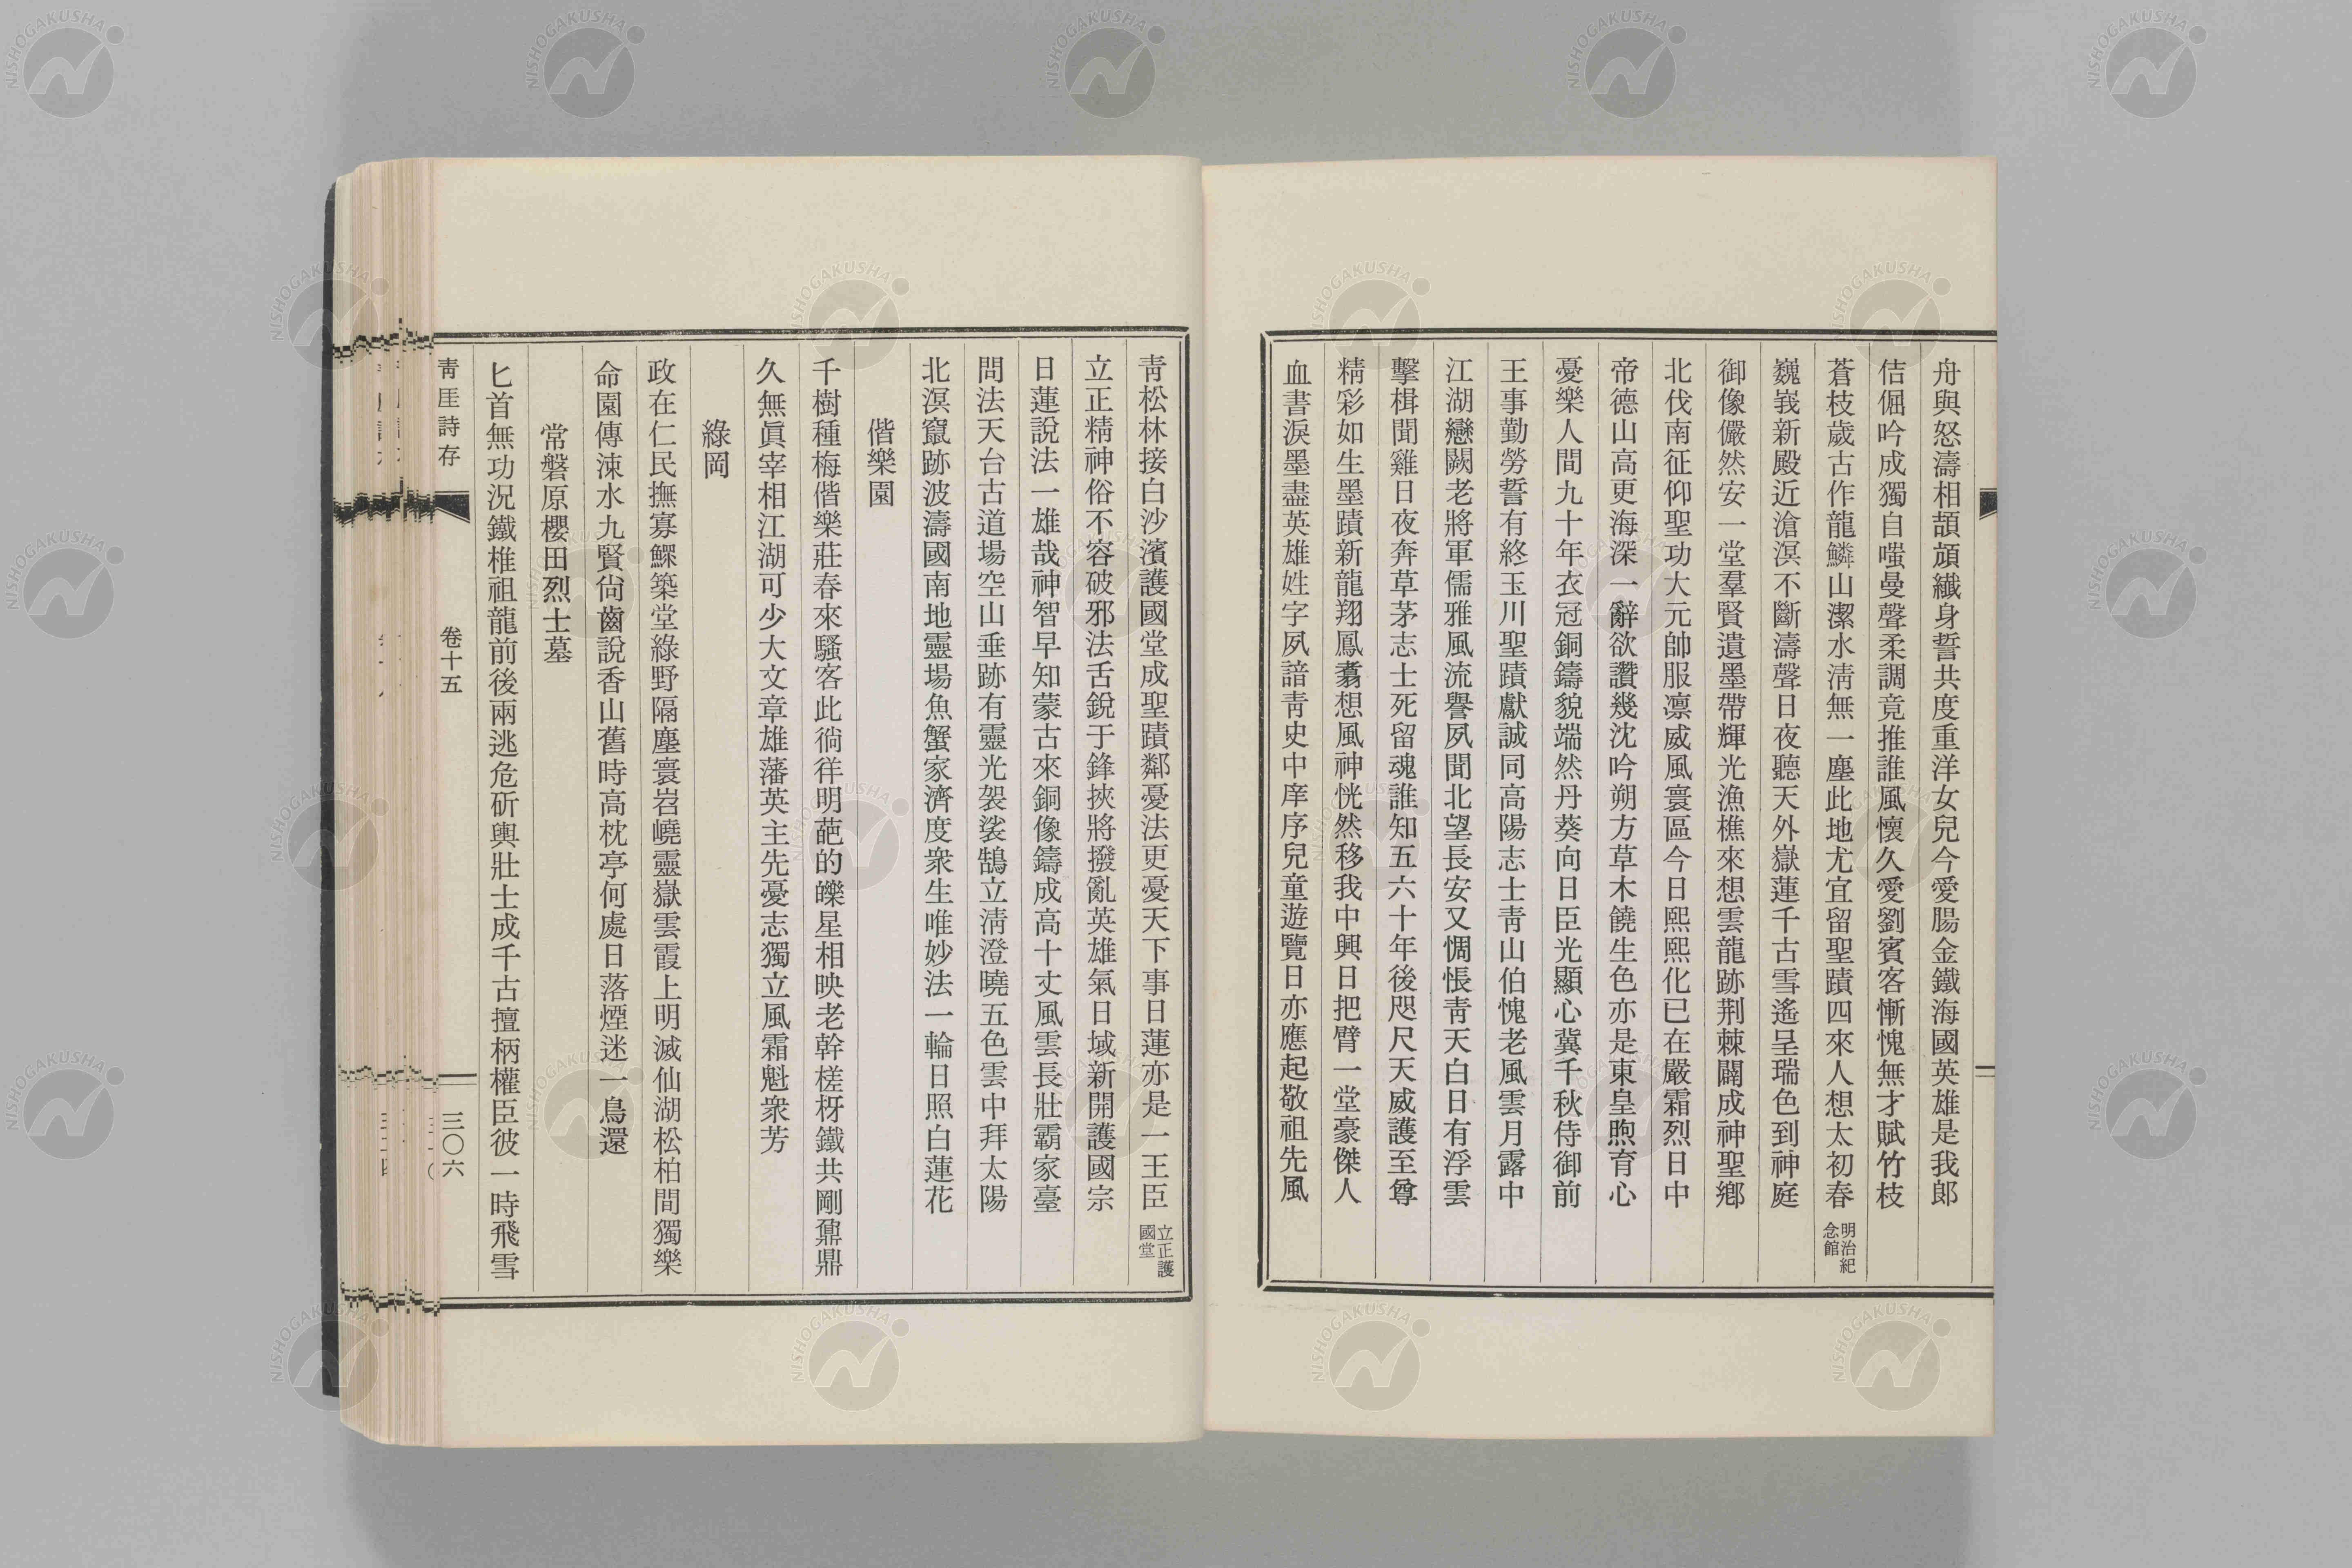 舟與怒濤相頡頏纖身誓共度重洋女兒今愛腸金鐵海國英雄是我郎
佶倔吟成獨自嗤曼聲柔調竟推誰風懷久愛劉賓客慚愧無才賦竹枝
蒼枝歲古作龍鱗山潔水淸無一塵此地尤宜留聖蹟四來人想太初春 明治紀念館
巍峩新殿近滄溟不斷濤聲日夜聽天外嶽蓮千古雪遙呈瑞色到神庭
御像儼然安一堂羣賢遺墨帶輝光漁樵來想雲龍跡荆棘闢成神聖鄕
北伐南征仰聖功大元帥服凛威風寰區今日熙熙化已在嚴霜烈日中
帝德山高更海深一辭欲讚幾沈吟朔方草木饒生色亦是東皇煦育心
憂樂人間九十年衣冠銅鑄貌端然丹葵向日臣光顯心冀千秋侍御前
王事勤勞誓有終玉川聖蹟獻誠同高陽志士靑山伯愧老風雲月露中
江湖戀闕老將軍儒雅風流譽夙聞北望長安又惆悵靑天白日有浮雲
擊楫聞雞日夜奔草茅志士死留魂誰知五六十年後咫尺天威護至尊
精彩如生墨蹟新龍翔鳳翥想風神恍然移我中興日把臂一堂豪傑人
血書淚墨盡英雄姓字夙諳靑史中庠序兒童遊覽日亦應起敬祖先風
靑松林接白沙濱護國堂成聖蹟鄰憂法更憂天下事日蓮亦是一王臣 立正護國堂
立正精神俗不容破邪法舌銳于鋒挾將撥亂英雄氣日域新開護國宗
日蓮說法一雄哉神智早知蒙古來銅像鑄成高十丈風雲長壯霸家臺
問法天台古道場空山垂跡有靈光袈裟鵠立淸澄曉五色雲中拜太陽
北溟竄跡波濤國南地靈場魚蟹家濟度衆生唯妙法一輪日照白蓮花
偕樂園
千樹種梅偕樂莊春來騷客此徜徉明葩的皪星相映老幹槎枒鐵共剛鼐鼎
久無眞宰相江湖可少大文章雄藩英主先憂志獨立風霜魁衆芳
綠岡
政在仁民撫寡鰥築堂綠野隔塵寰岧嶢靈嶽雲霞上明滅仙湖松柏間獨樂
命園傳涑水九賢尙齒說香山舊時高枕亭何處日落煙迷一鳥還
常磐原櫻田烈士墓
匕首無功況鐵椎祖龍前後兩逃危斫輿壯士成千古擅柄權臣彼一時飛雪
靑厓詩存
卷十五
三〇六